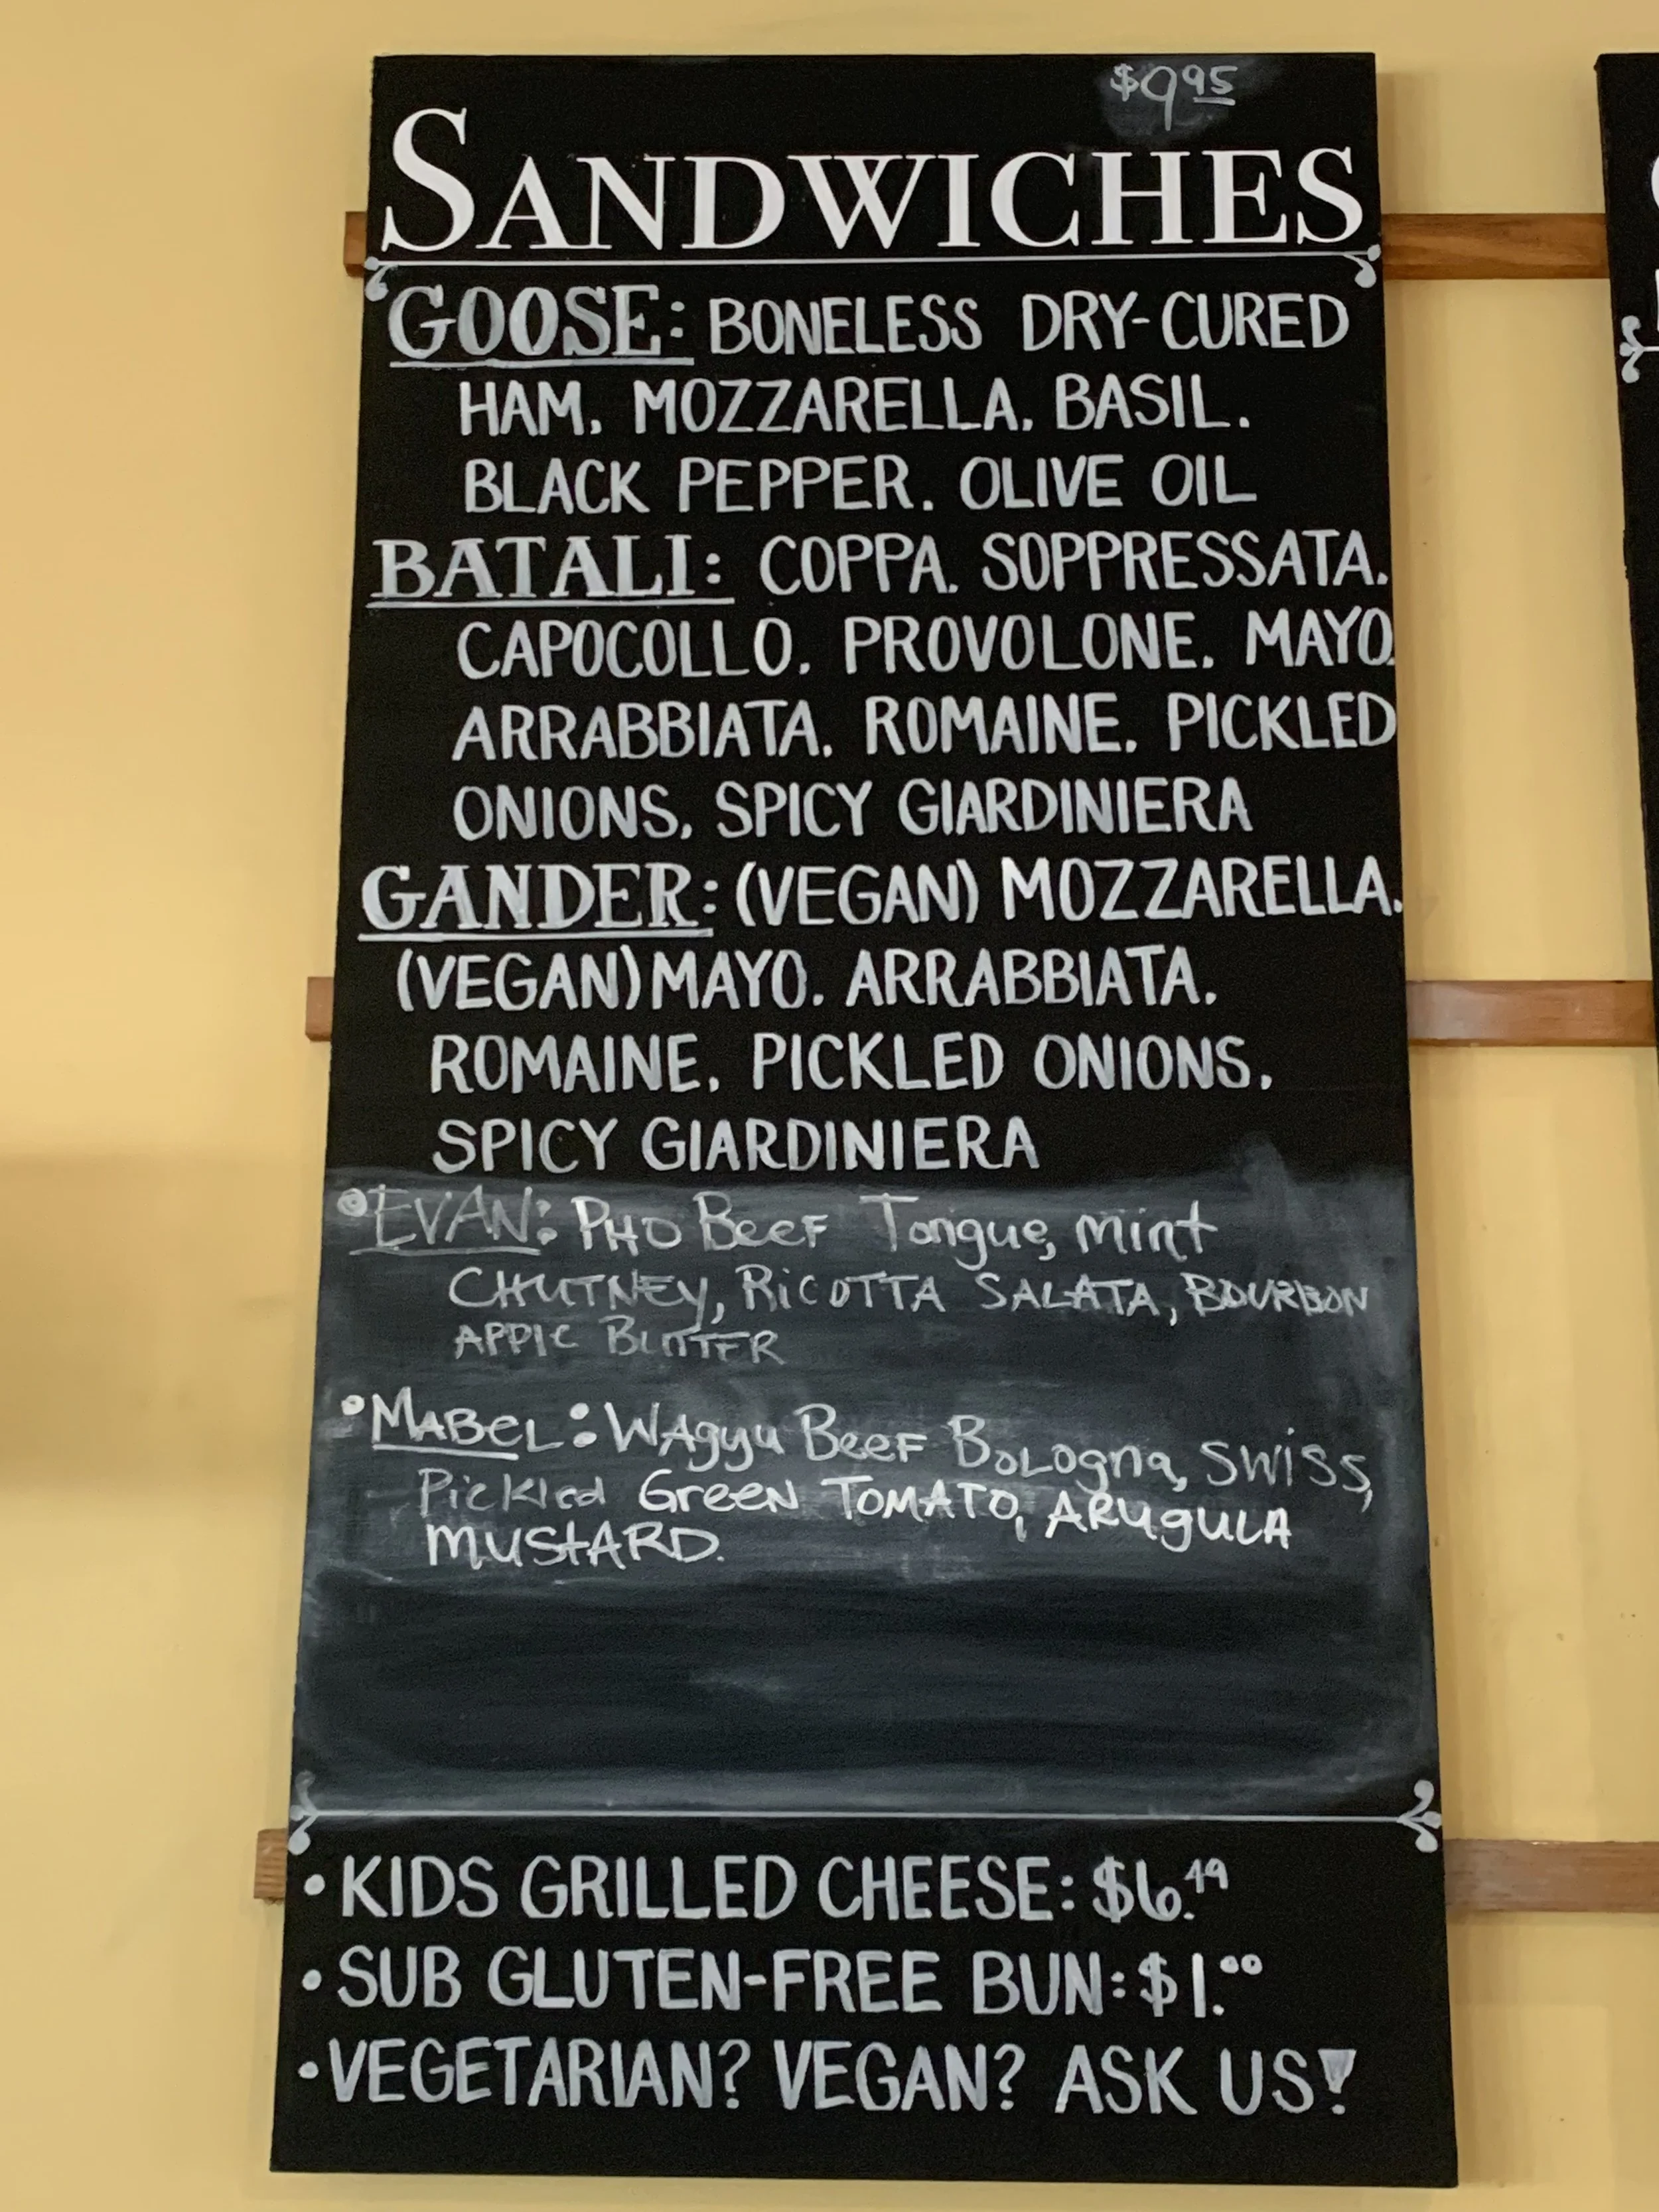 $9.95
SANDWICHES
GOOSE: BONELESS DRY-CURED
HAM. MOZZARELLA. BASIL.
BLACK PEPPER. OLIVE OIL
BATALI: COPPA. SOPPRESSATA.
CAPOCOLLO. PROVOLONE. MAYO.
ARRABBIATA. ROMAINE. PICKLED
ONIONS. SPICY GIARDINIERA
GANDER: (VEGAN) MOZZARELLA.
(VEGAN) MAYO. ARRABBIATA.
ROMAINE. PICKLED ONIONS.
SPICY GIARDINIERA
•EVAN: PHO BEEF Tongue, mint
CHUTNEY, RiCOTTA SALATA, BOURBON
APPlE BUTTER
•MABEL: WAgyu BeeF BOLogna, SWiSS,
Pickled GreeN TOMATO, ARugULA
MUStARD.
•KIDS GRILLED CHEESE: $6.49
•SUB GLUTEN-FREE BUN: $1.00
•VEGETARIAN? VEGAN? ASK US!